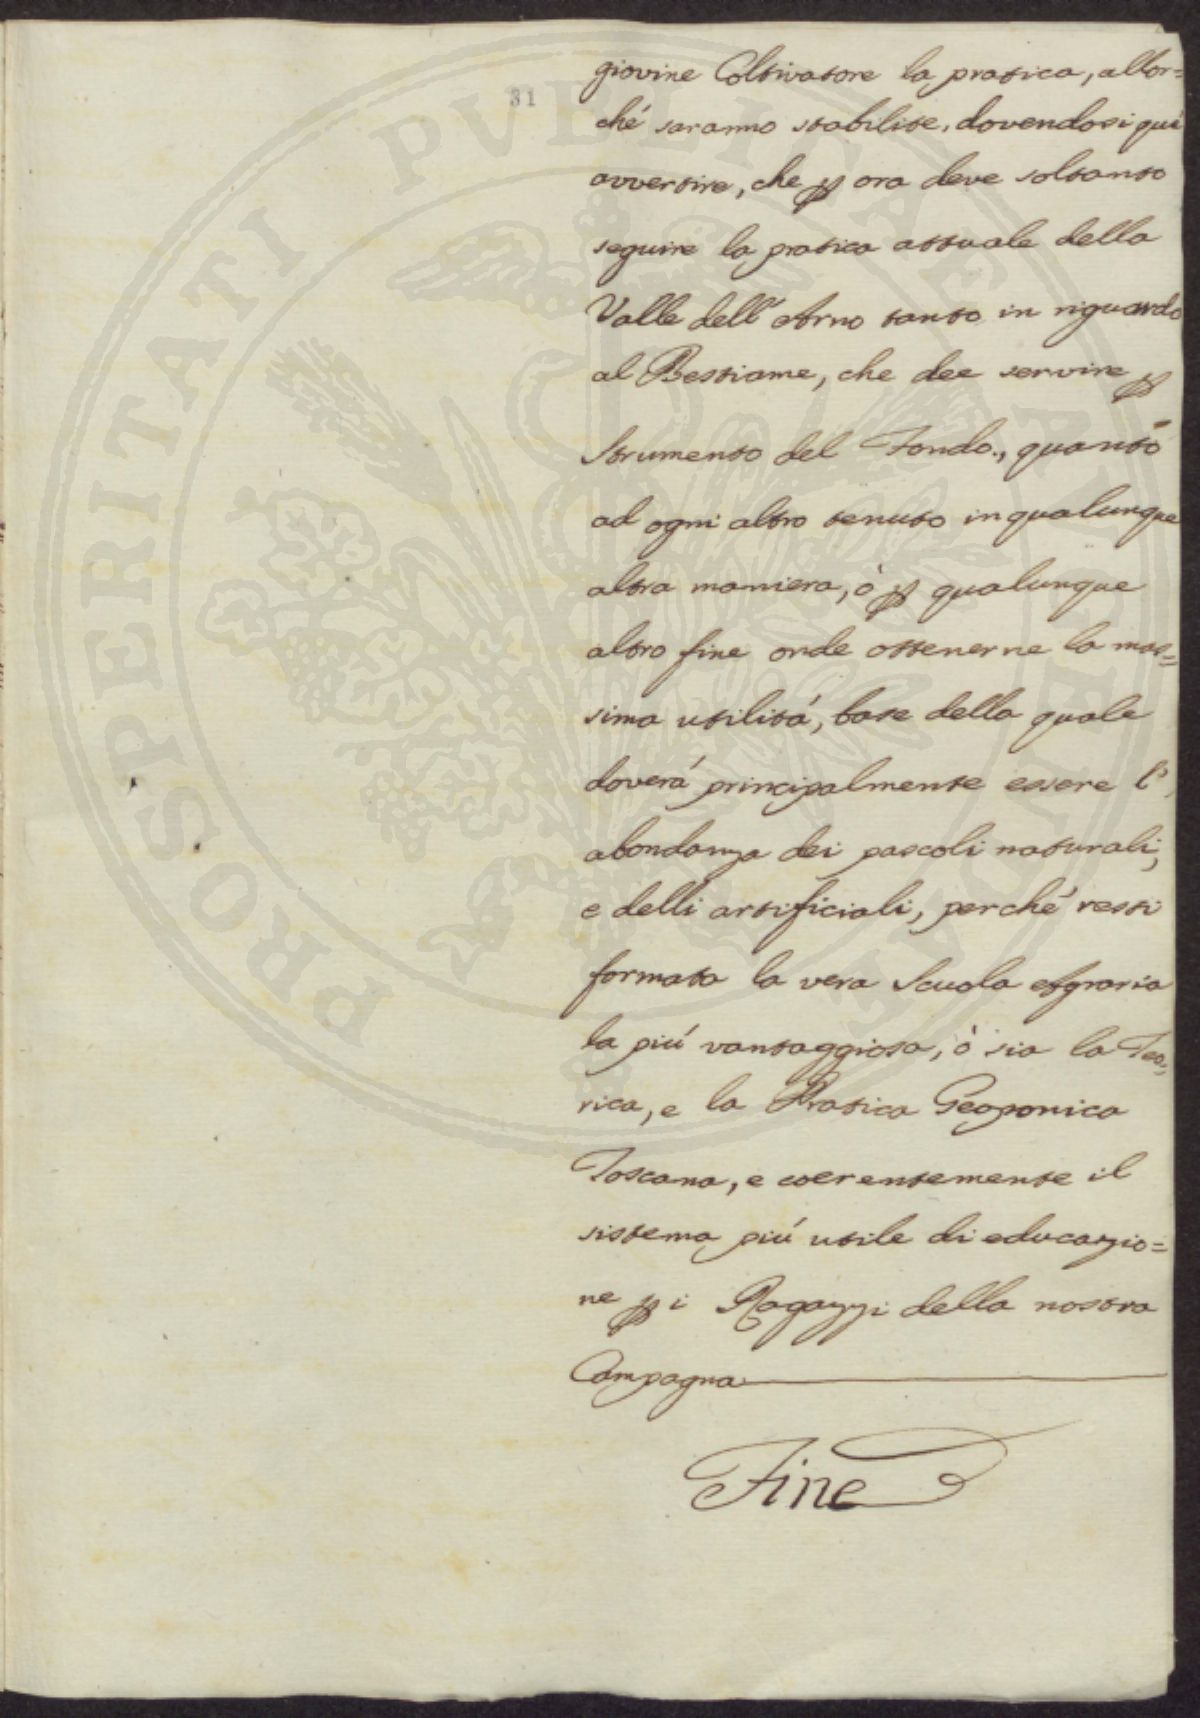 31
giovine Coltivatore la pratica, allor=
ché saranno stabilite, dovendosi quì
avvertire, che ꝑ ora deve soltanto
seguire la pratica attuale della
Valle dell'Arno tanto in riguardo
al Bestiame, che dee servire ꝑ
Strumento del Fondo., quanto
ad ogni altro tenuto in qualunque
altra maniera, ò ꝑ qualunque
altro fine onde ottenerne la mas=
sima utilitá, base della quale
doverá principalmente essere l'
abondanza dei pascoli naturali,
e delli artificiali, perché resti
formata la vera Scuola Agraria
la piú vantaggiosa, ò sia la Teo,
rica, e la Pratica Geoponica
Toscana, e coerentemente il
sistema piú utile di educazio=
ne ꝑ i Ragazzi della nostra
Campagna
Fine
PROSPERITATI PVBLICAE AVGENDAE